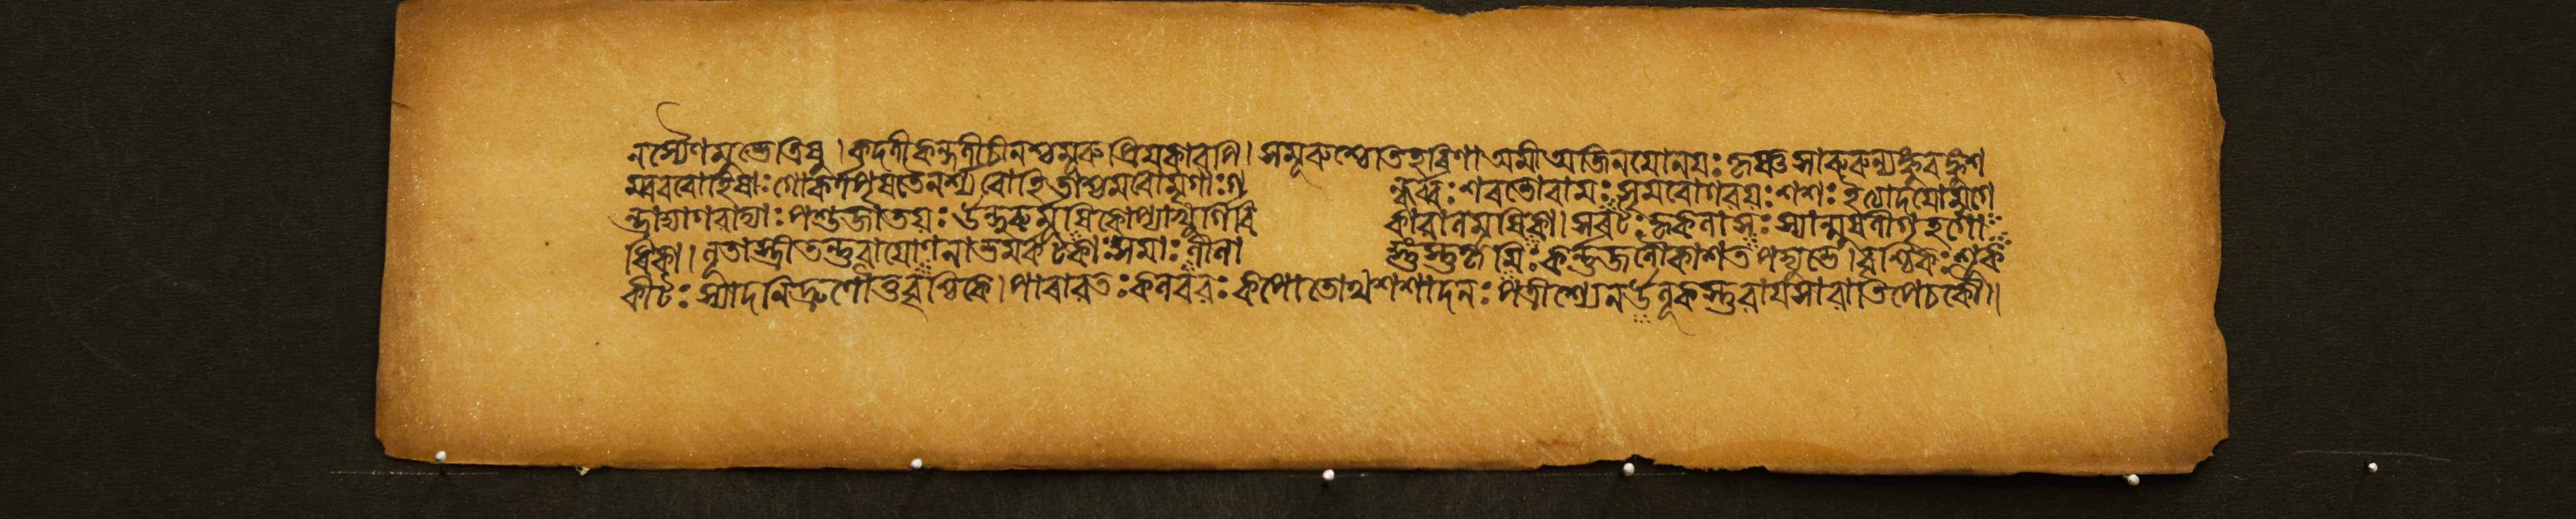 ণস্যৈণমুভে ত্রিষু । কদলী কন্দলী চীনশ্চমূরু প্রিয়কাবপি । সমূরুশ্চেতি হরিণা অমী অজিনযোনয়ঃ কৃষ্ণসাররুরুন্যঙ্কুরঙ্কুশ
ম্বররৌহিষাঃ গোকর্ণপৃষতৈণর্শ্যরোহিতাশ্চমরো মৃগাঃ গন্ধর্ব্বঃ শরভো রামঃ সৃমরো গবয়ঃ শশঃ ইত্যাদয়ো মৃগে
ন্দ্রাদ্যা গবাদ্যাঃ পশুজাতয়ঃ উন্দুরুর্মূষিকোপ্যাখুর্গিরিকা বালমূষিকা । সরটঃ কৃকলাসঃ স্যান্মুসলী গৃহগো
ধিকা । লূতা স্ত্রী তন্তুবায়োর্ণনাভমর্কটকাঃ সমাঃ নীলাঙ্গুস্তু কৃমিঃ কর্ণজলৌকা শতপদ্যুভে । বৃশ্চিকঃ শূক
কীটঃ স্যাদলিদ্রুণৌ তু বৃশ্চিকে । পারাবতঃ কলরবঃ কপোতোথ শশাদনঃ পত্রী শ্যেন উলূকস্তু বায়সারাতিপেচকৌ ॥